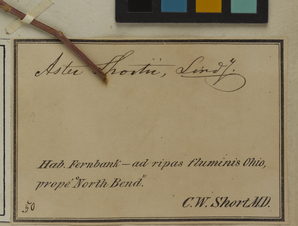 Aster Shortii, Lindl.
Hab. Fernbank — ad ripas fluminis Ohio,
prope "North Bend".
50
C.W. Short M.D.